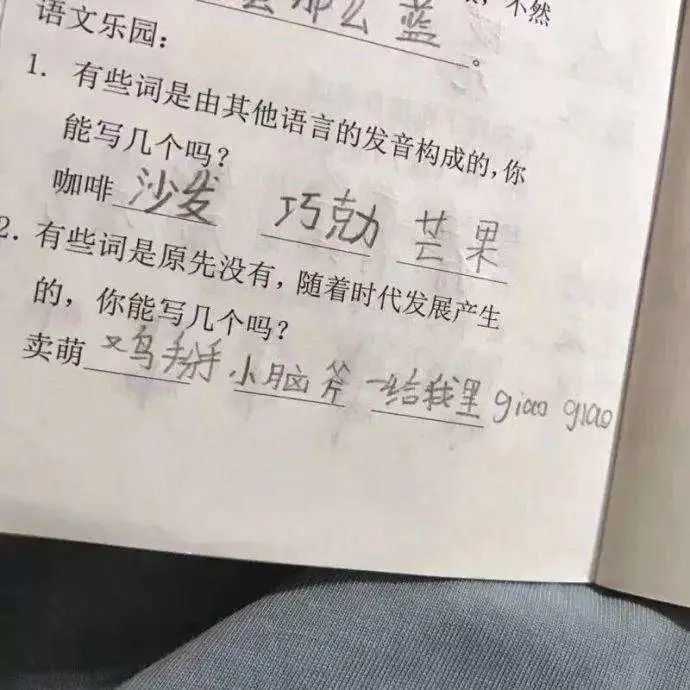 么那么蓝
，不然
。
语文乐园：
1. 有些词是由其他语言的发音构成的，你
能写几个吗？
咖啡 沙发 巧克力 芒果
2. 有些词是原先没有，随着时代发展产生
的，你能写几个吗？
卖萌 鸡掰手 小脑斧 一给我里 giao giao